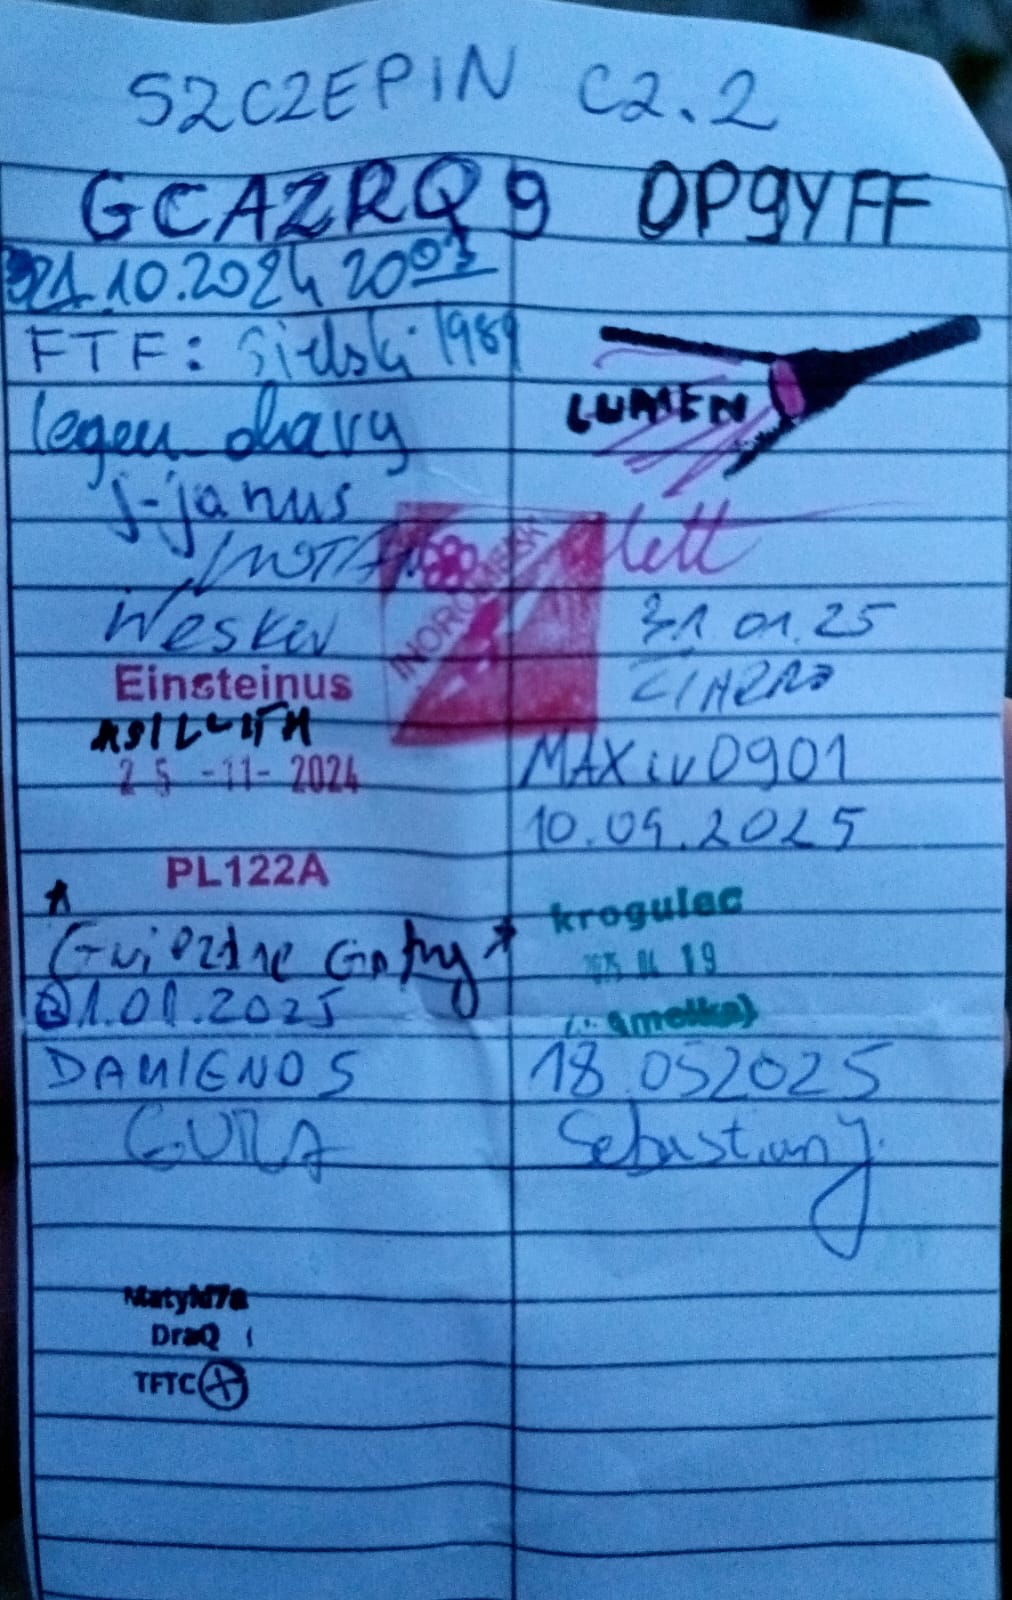 SZCZEPIN C2.2
GCAZRQ9 OP9YFF
21.10.2024 20 03
FTF: Sielski 1989
legen_dhavy
j-janus
Wesker
Einsteinus
25 -11- 2024
PL122A
* Gwiezdne Gapy *
21.01.2025
DAMIENOS
GURA
Matyld7a
DraQ
TFTC
LUMEN
lett
INOROWERSK
31.01.25
MAXiu0901
10.04.2025
krogulec
2025 04 19
18.052025
Sebastian J.